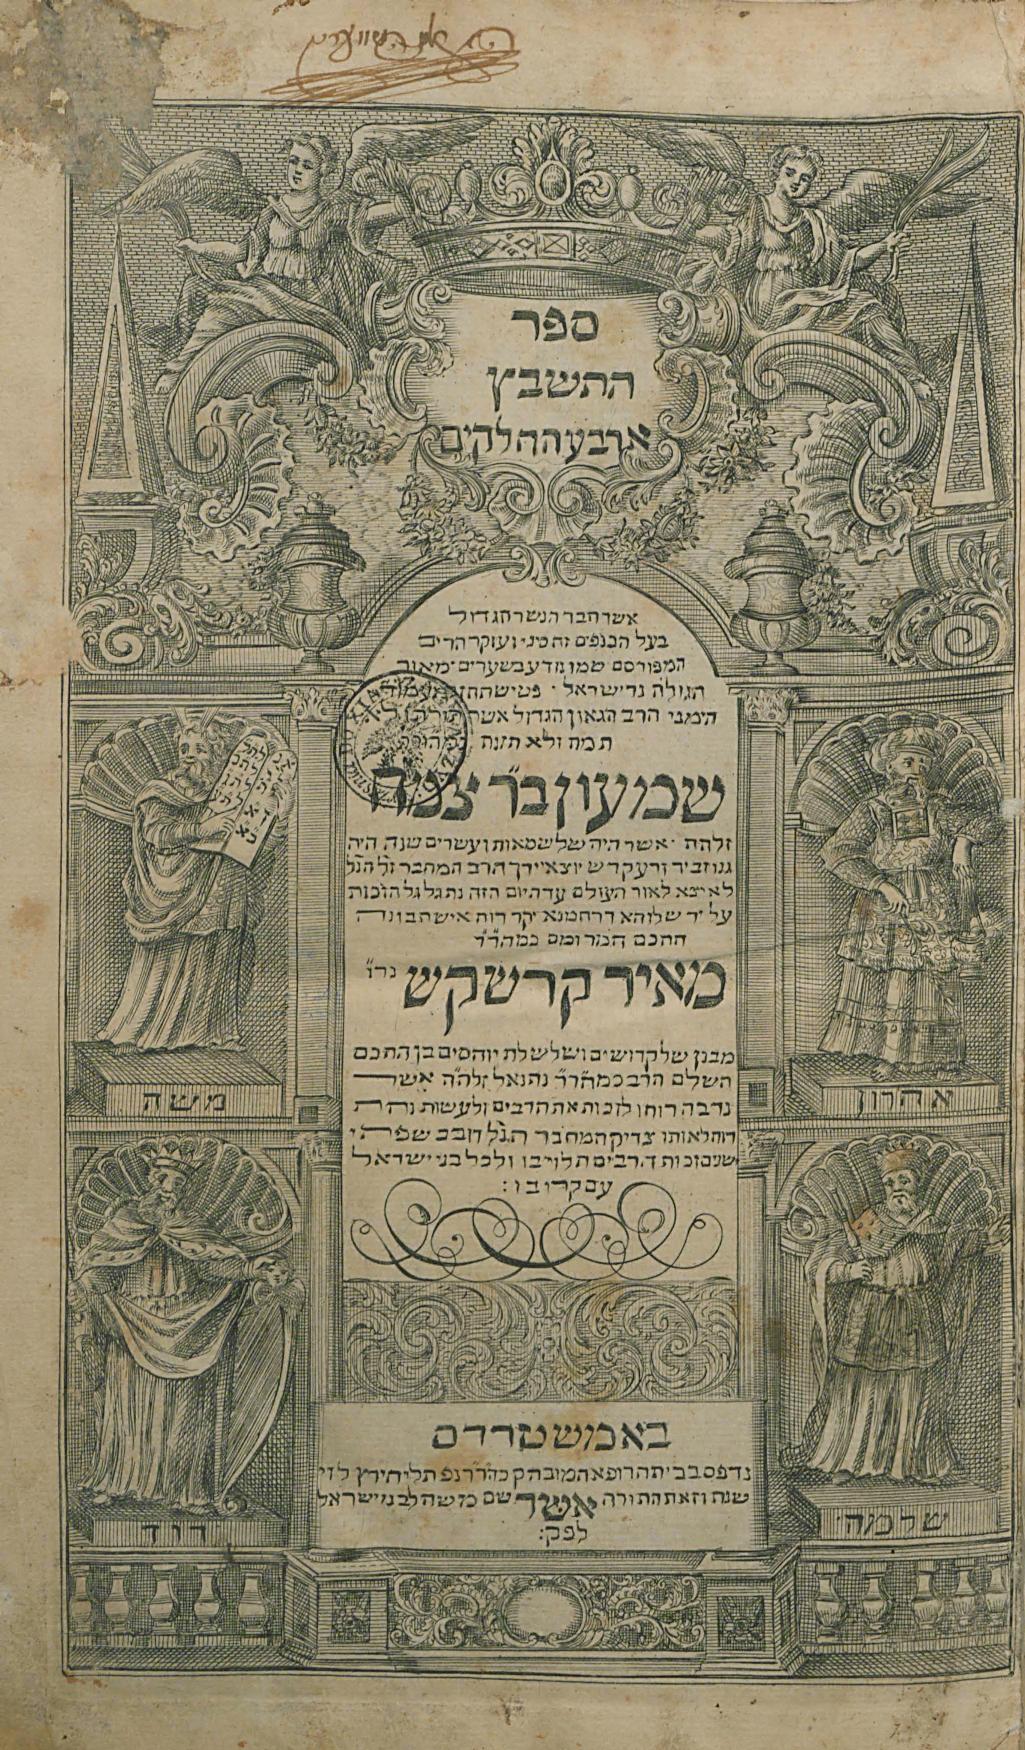 ספר
התשבץ
ארבעה חלקים
אשר חבר הנשר הגדול
בעל הכנפים זה סיני ועוקר הרים
המפורסם שמו נודע בשערים מאור
הגולה נר ישראל פטיש החזק עמוד
הימני הרב הגאון הגדול אשר
תמה ולא זזה
שמעון ב״ר צמח
זלהה אשר היה שלש מאות ועשרים שנה היה
גנוז ביד זרע קדש יוצאי ירך הרב המחבר ז״ל הנ״ל
לא יצא לאור העולם עד היום הזה נתגלגל הזכות
על יד שלוחא דרחמנא יקר רוח איש תבונה
החכם המרומם כמהר״ר
מאיר קרשקש נר״ו
מבנן של קדושים ושלשלת יוחסים בן החכם
השלם הרב כמה״רר נתנאל זלה״ה אשר
נדבה רוחו לזכות את הרבים ולעשות נחת
רוח לאותו צדיק המחבר הנ״ל דובב שפתי
ישנים זכות הרבים תלוי בו ולכל בני ישראל
עם קרובו:
משה
אהרון
דוד
שלמה
באמשטרדם
נדפס בבית הרופא המובהק כהר״ר נפתלי הירץ לוי
שנת וזאת התורה אשר שם משה לבני ישראל
לפק: